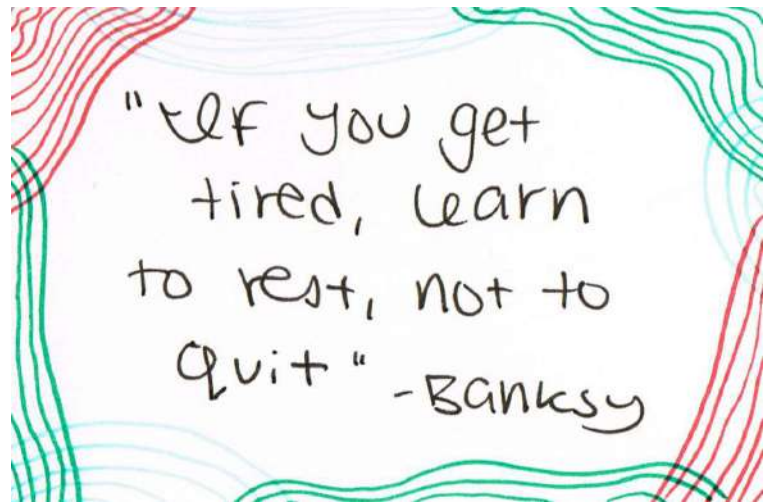 "If you get
tired, learn
to rest, not to
quit" -Banksy